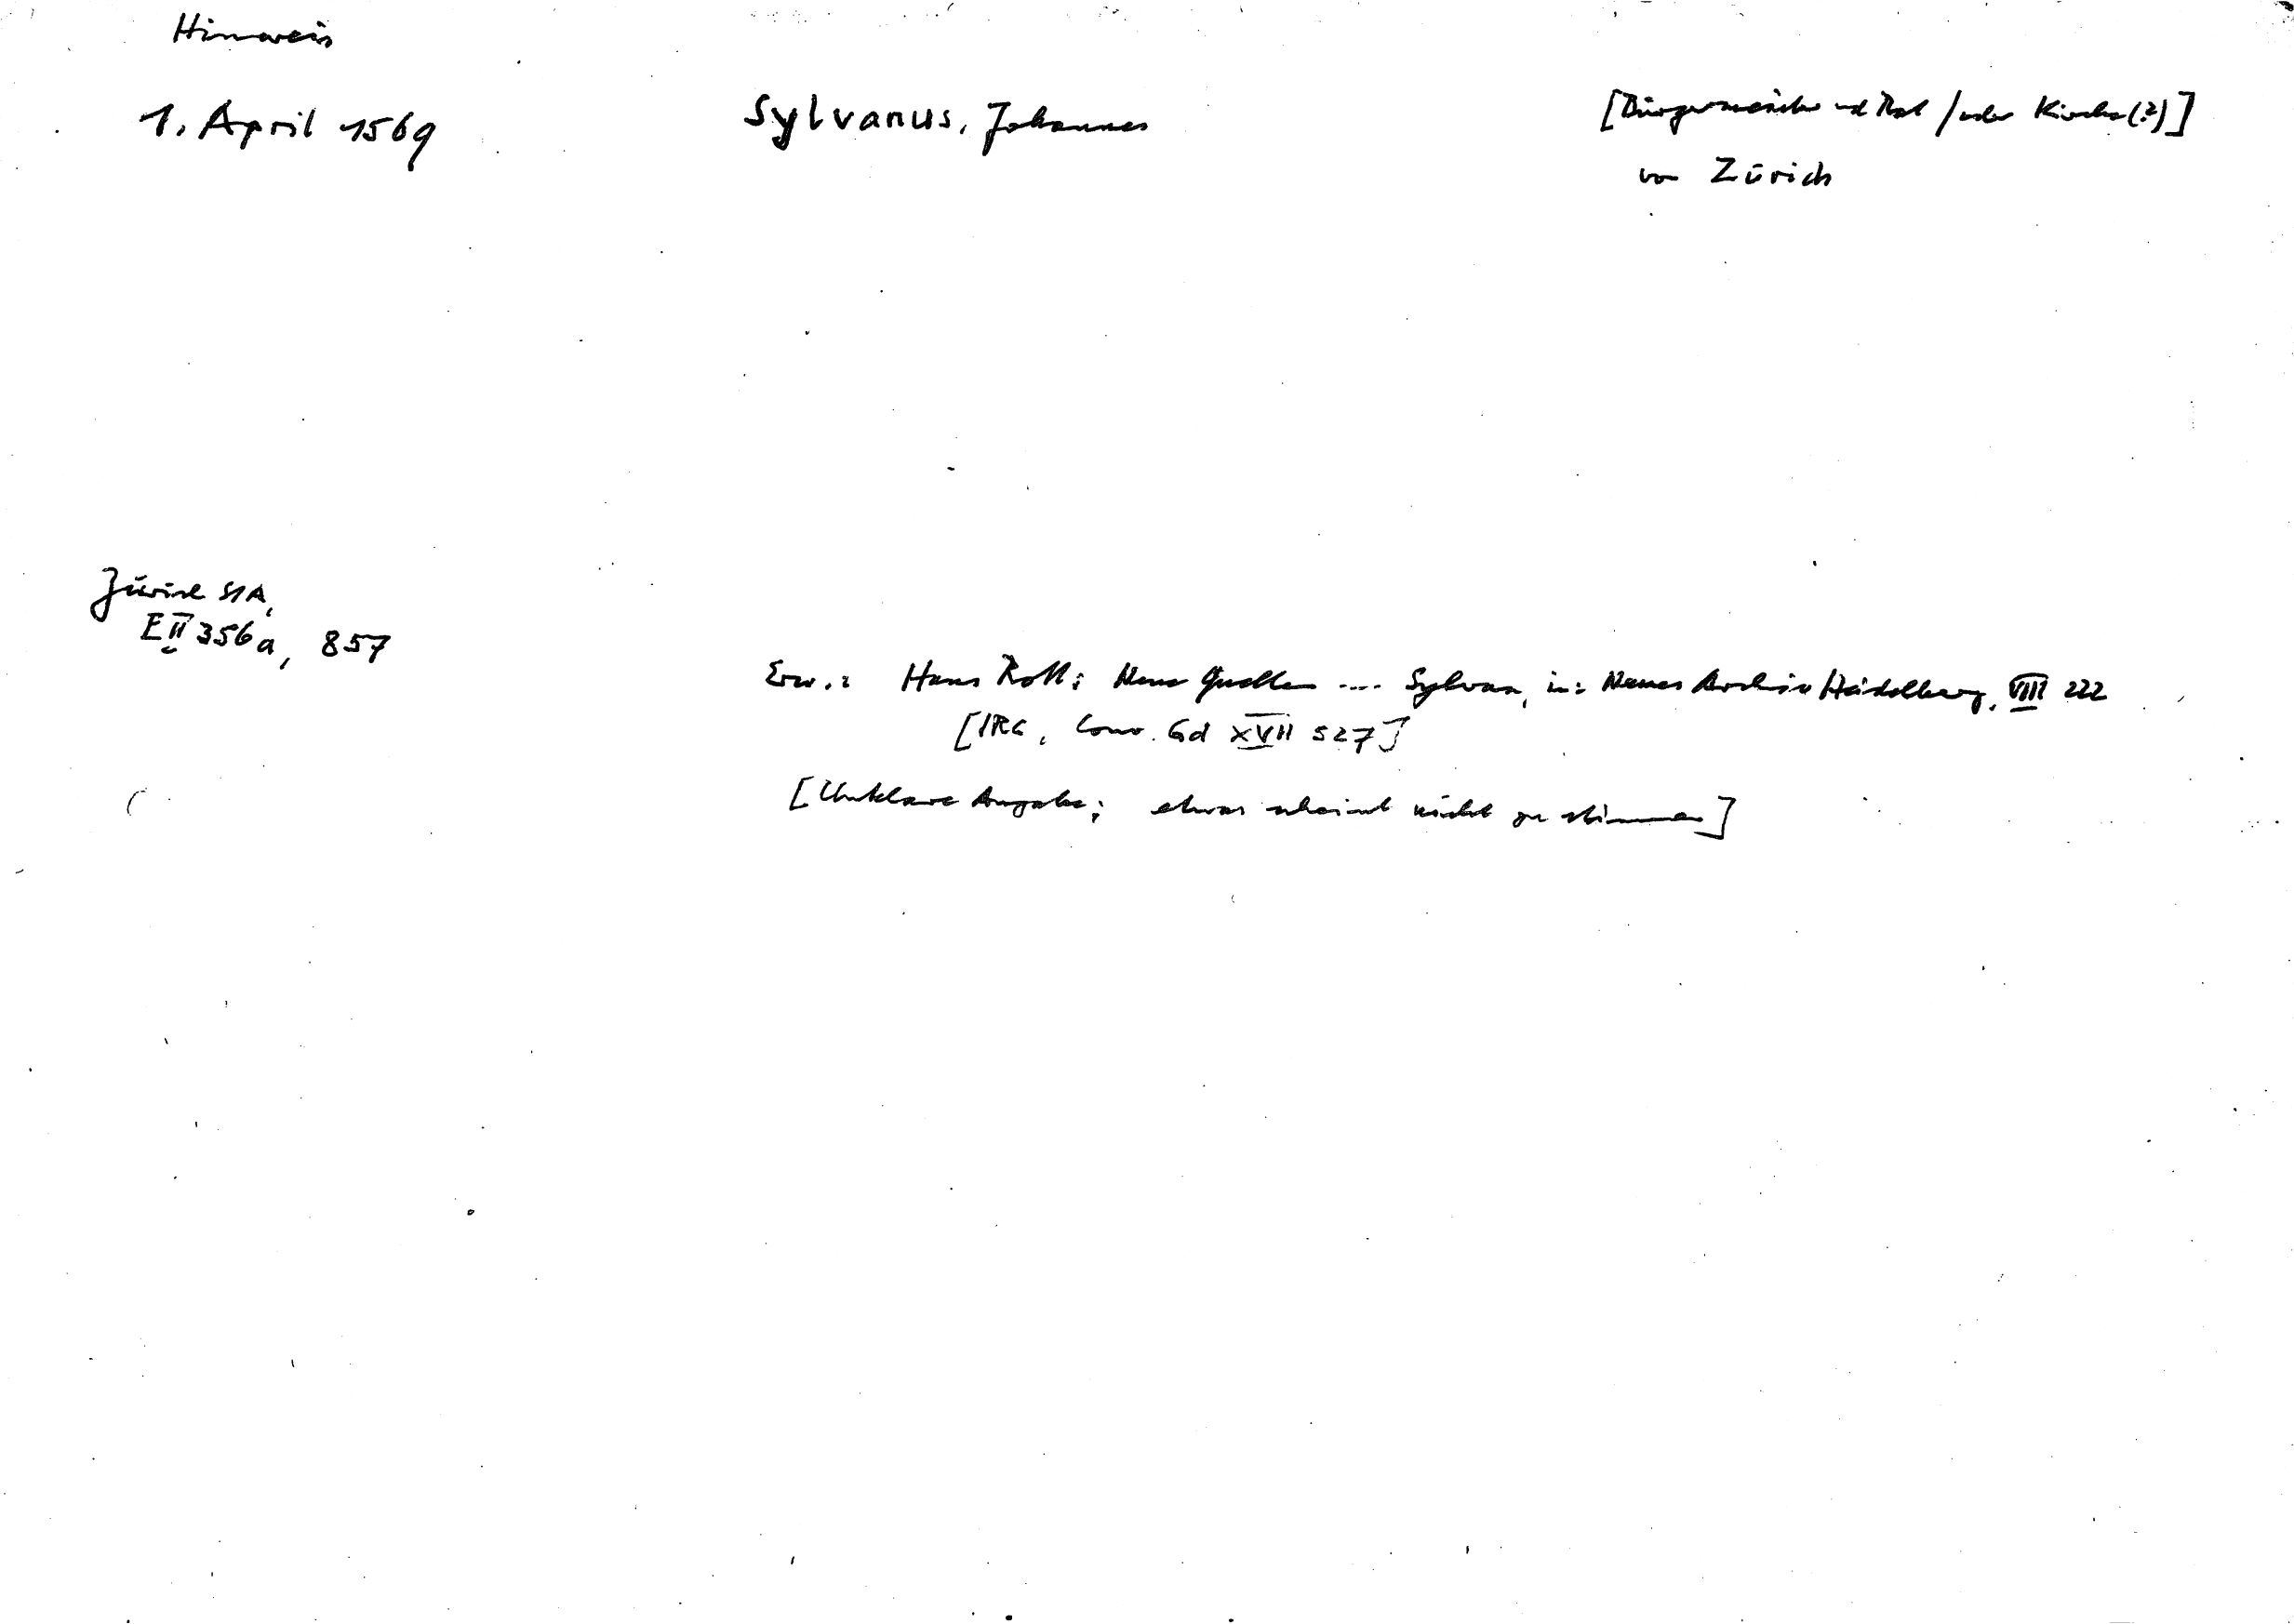 Hinweis
1. April 1569
Sylvanus, Johannes
[Bürgermeister und Rat / oder Kirche (?)]
von Zürich
Zürich StA,
E II 356a, 857
Erw.: Hans Rott: Neue Quellen .... Sylvan, in: Neues Archiv Heidelberg, VIII 222
[IRG, Conv. Gd XVII 527]
[Unklare Angabe; etwas scheint nicht zu stimmen]